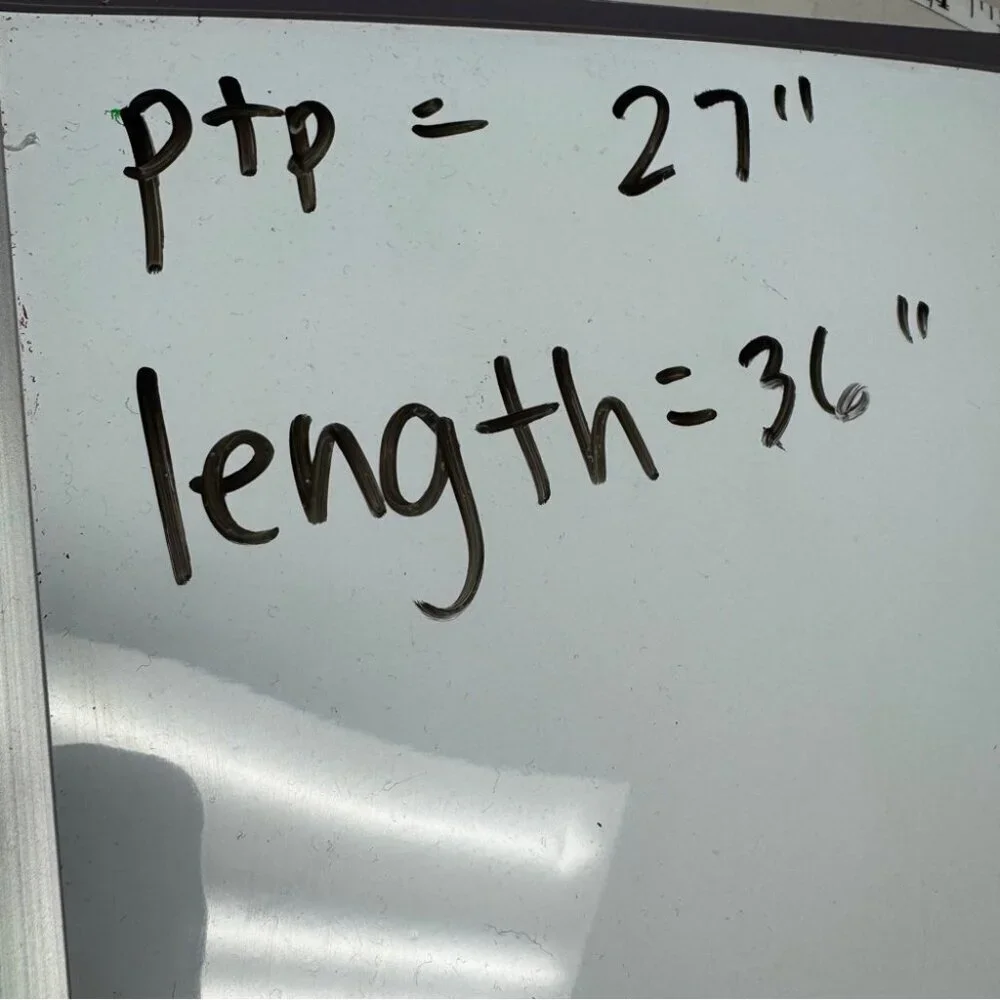 ptp = 27"
length = 36"